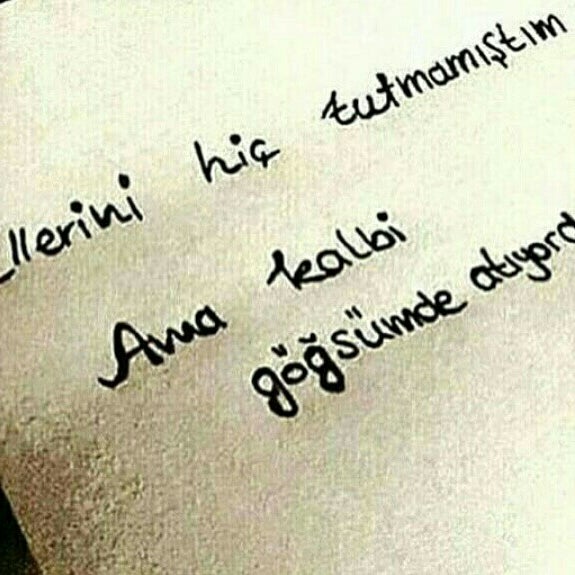 Ellerini hiç tutmamıştım
Ama kalbi
göğsümde atıyord